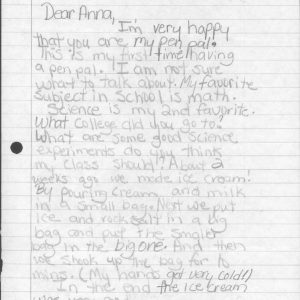 Dear Anna,
I'm very happy
that you are my pen pal.
This is my first time having
a pen pal. I am not sure
what to talk about. My favorite
subject in school is math.
Science is my 2nd favorite.
What College did you go to?
What are some good science
experiments do you think
my class should? About 2
weeks ago we made ice cream!
By pouring cream and milk
in a small bag. Next we put
ice and rock salt in a big
bag and put the smaller
bag in the big one. And then
we shook up the bag for
mins. (My hands got very cold!)
In the end the ice cream
was very